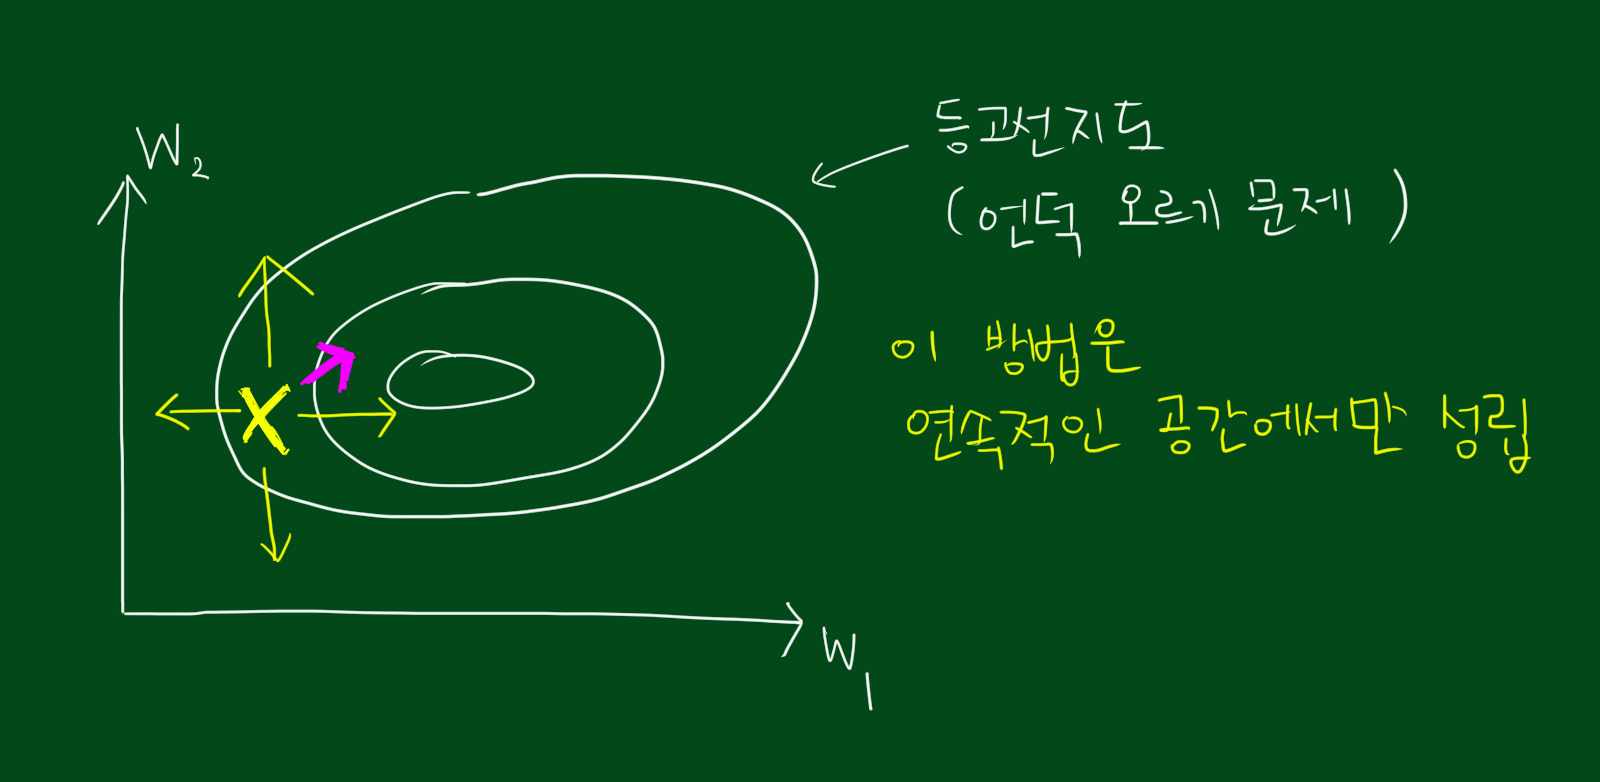 W₂
등고선지도
(언덕 오르기 문제)
이 방법은
연속적인 공간에서만 성립
W₁